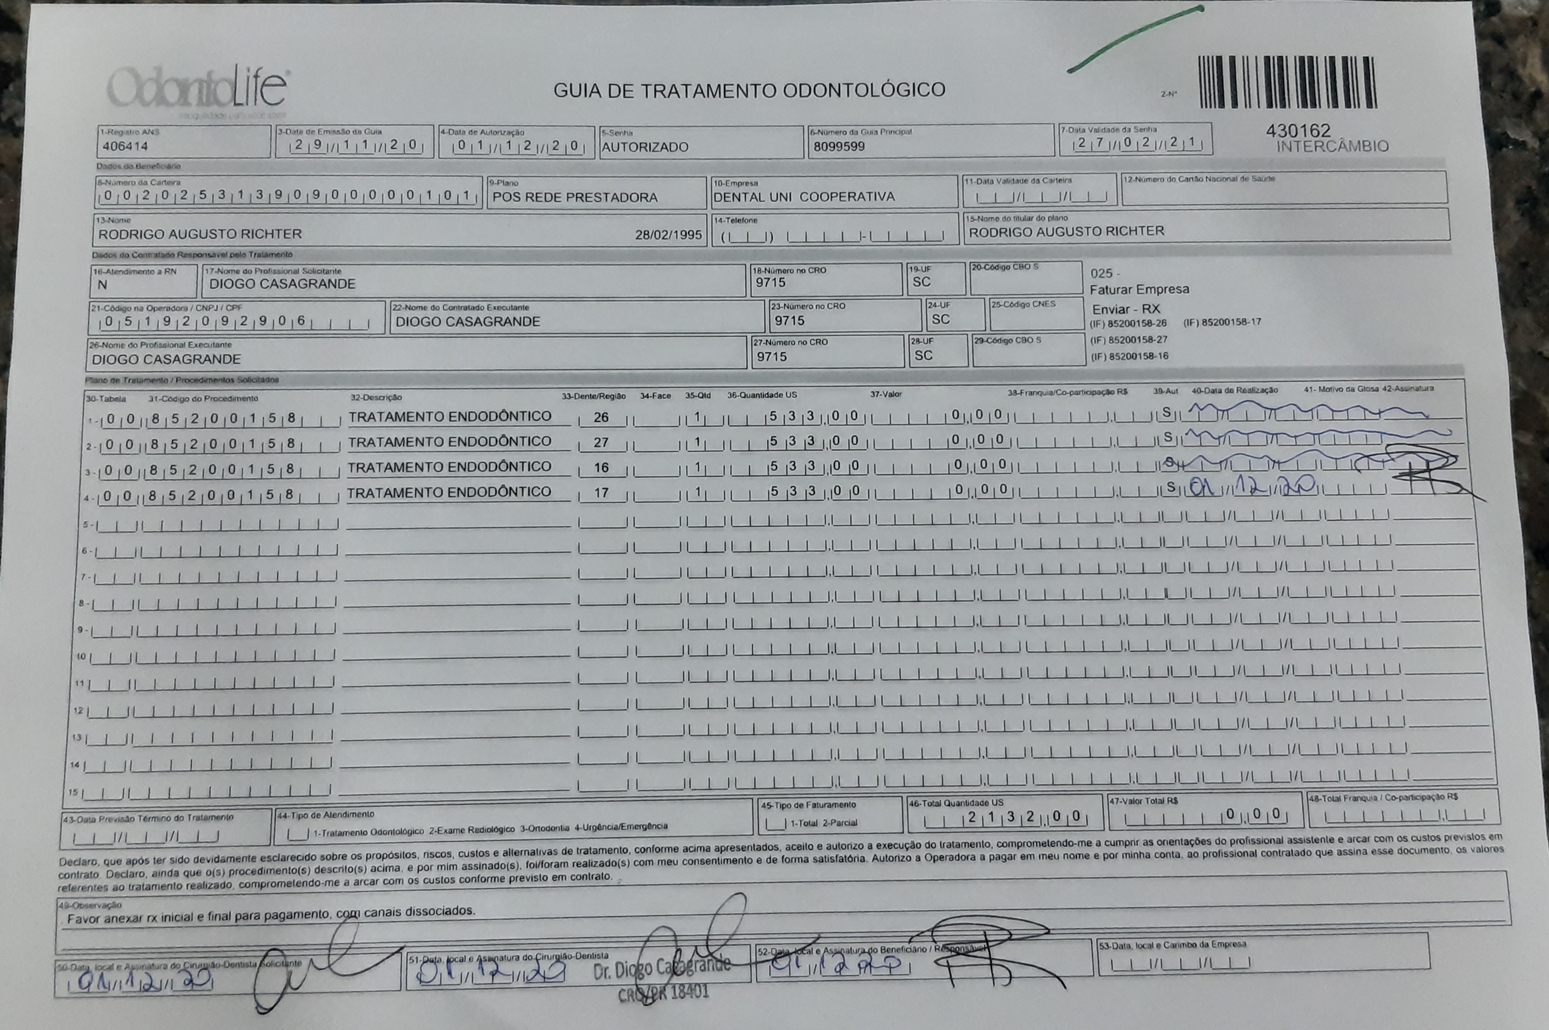 OdontoLife
GUIA DE TRATAMENTO ODONTOLÓGICO
2-Nº
430162
INTERCÂMBIO
1-Registro ANS
406414
3-Data de Emissão da Guia
29/11/20
4-Data de Autorização
01/12/20
5-Senha
AUTORIZADO
6-Número da Guia Principal
8099599
7-Data Validade da Senha
27/02/21
Dados do Beneficiário
8-Número da Carteira
00202531390900000101
9-Plano
POS REDE PRESTADORA
10-Empresa
DENTAL UNI COOPERATIVA
11-Data Validade da Carteira
12-Número do Cartão Nacional de Saúde
13-Nome
RODRIGO AUGUSTO RICHTER 28/02/1995
14-Telefone
15-Nome do titular do plano
RODRIGO AUGUSTO RICHTER
Dados do Contratado Responsável pelo Tratamento
16-Atendimento a RN
N
17-Nome do Profissional Solicitante
DIOGO CASAGRANDE
18-Número no CRO
9715
19-UF
SC
20-Código CBO S
025 -
Faturar Empresa
Enviar - RX
(IF) 85200158-26 (IF) 85200158-17
(IF) 85200158-27
(IF) 85200158-16
21-Código na Operadora / CNPJ / CPF
05192092906
22-Nome do Contratado Executante
DIOGO CASAGRANDE
23-Número no CRO
9715
24-UF
SC
25-Código CNES
26-Nome do Profissional Executante
DIOGO CASAGRANDE
27-Número no CRO
9715
28-UF
SC
29-Código CBO S
Plano de Tratamento / Procedimentos Solicitados
30-Tabela 31-Código do Procedimento 32-Descrição 33-Dente/Região 34-Face 35-Qtd 36-Quantidade US 37-Valor 38-Franquia/Co-participação R$ 39-Aut 40-Data de Realização 41- Motivo da Glosa 42-Assinatura
1- 00 85200158 TRATAMENTO ENDODÔNTICO 26 1 533,00 0,00 S
2- 00 85200158 TRATAMENTO ENDODÔNTICO 27 1 533,00 0,00 S
3- 00 85200158 TRATAMENTO ENDODÔNTICO 16 1 533,00 0,00 S
4- 00 85200158 TRATAMENTO ENDODÔNTICO 17 1 533,00 0,00 S 01/12/20
5-
6-
7-
8-
9-
10
11
12
13
14
15
43-Data Previsão Término do Tratamento
44-Tipo de Atendimento
1-Tratamento Odontológico 2-Exame Radiológico 3-Ortodontia 4-Urgência/Emergência
45-Tipo de Faturamento
1-Total 2-Parcial
46-Total Quantidade US
2132,00
47-Valor Total R$
0,00
48-Total Franquia / Co-participação R$
Declaro, que após ter sido devidamente esclarecido sobre os propósitos, riscos, custos e alternativas de tratamento, conforme acima apresentados, aceito e autorizo a execução do tratamento, comprometendo-me a cumprir as orientações do profissional assistente e arcar com os custos previstos em
contrato. Declaro, ainda que o(s) procedimento(s) descrito(s) acima, e por mim assinado(s), foi/foram realizado(s) com meu consentimento e de forma satisfatória. Autorizo a Operadora a pagar em meu nome e por minha conta, ao profissional contratado que assina esse documento, os valores
referentes ao tratamento realizado, comprometendo-me a arcar com os custos conforme previsto em contrato.
49-Observação
Favor anexar rx inicial e final para pagamento, com canais dissociados.
50-Data, local e Assinatura do Cirurgião-Dentista Solicitante
01/12/20
51-Data, local e Assinatura do Cirurgião-Dentista
01/12/20
Dr. Diogo Casagrande
CRO/PR 18401
52-Data, local e Assinatura do Beneficiário / Responsável
01/12/20
53-Data, local e Carimbo da Empresa